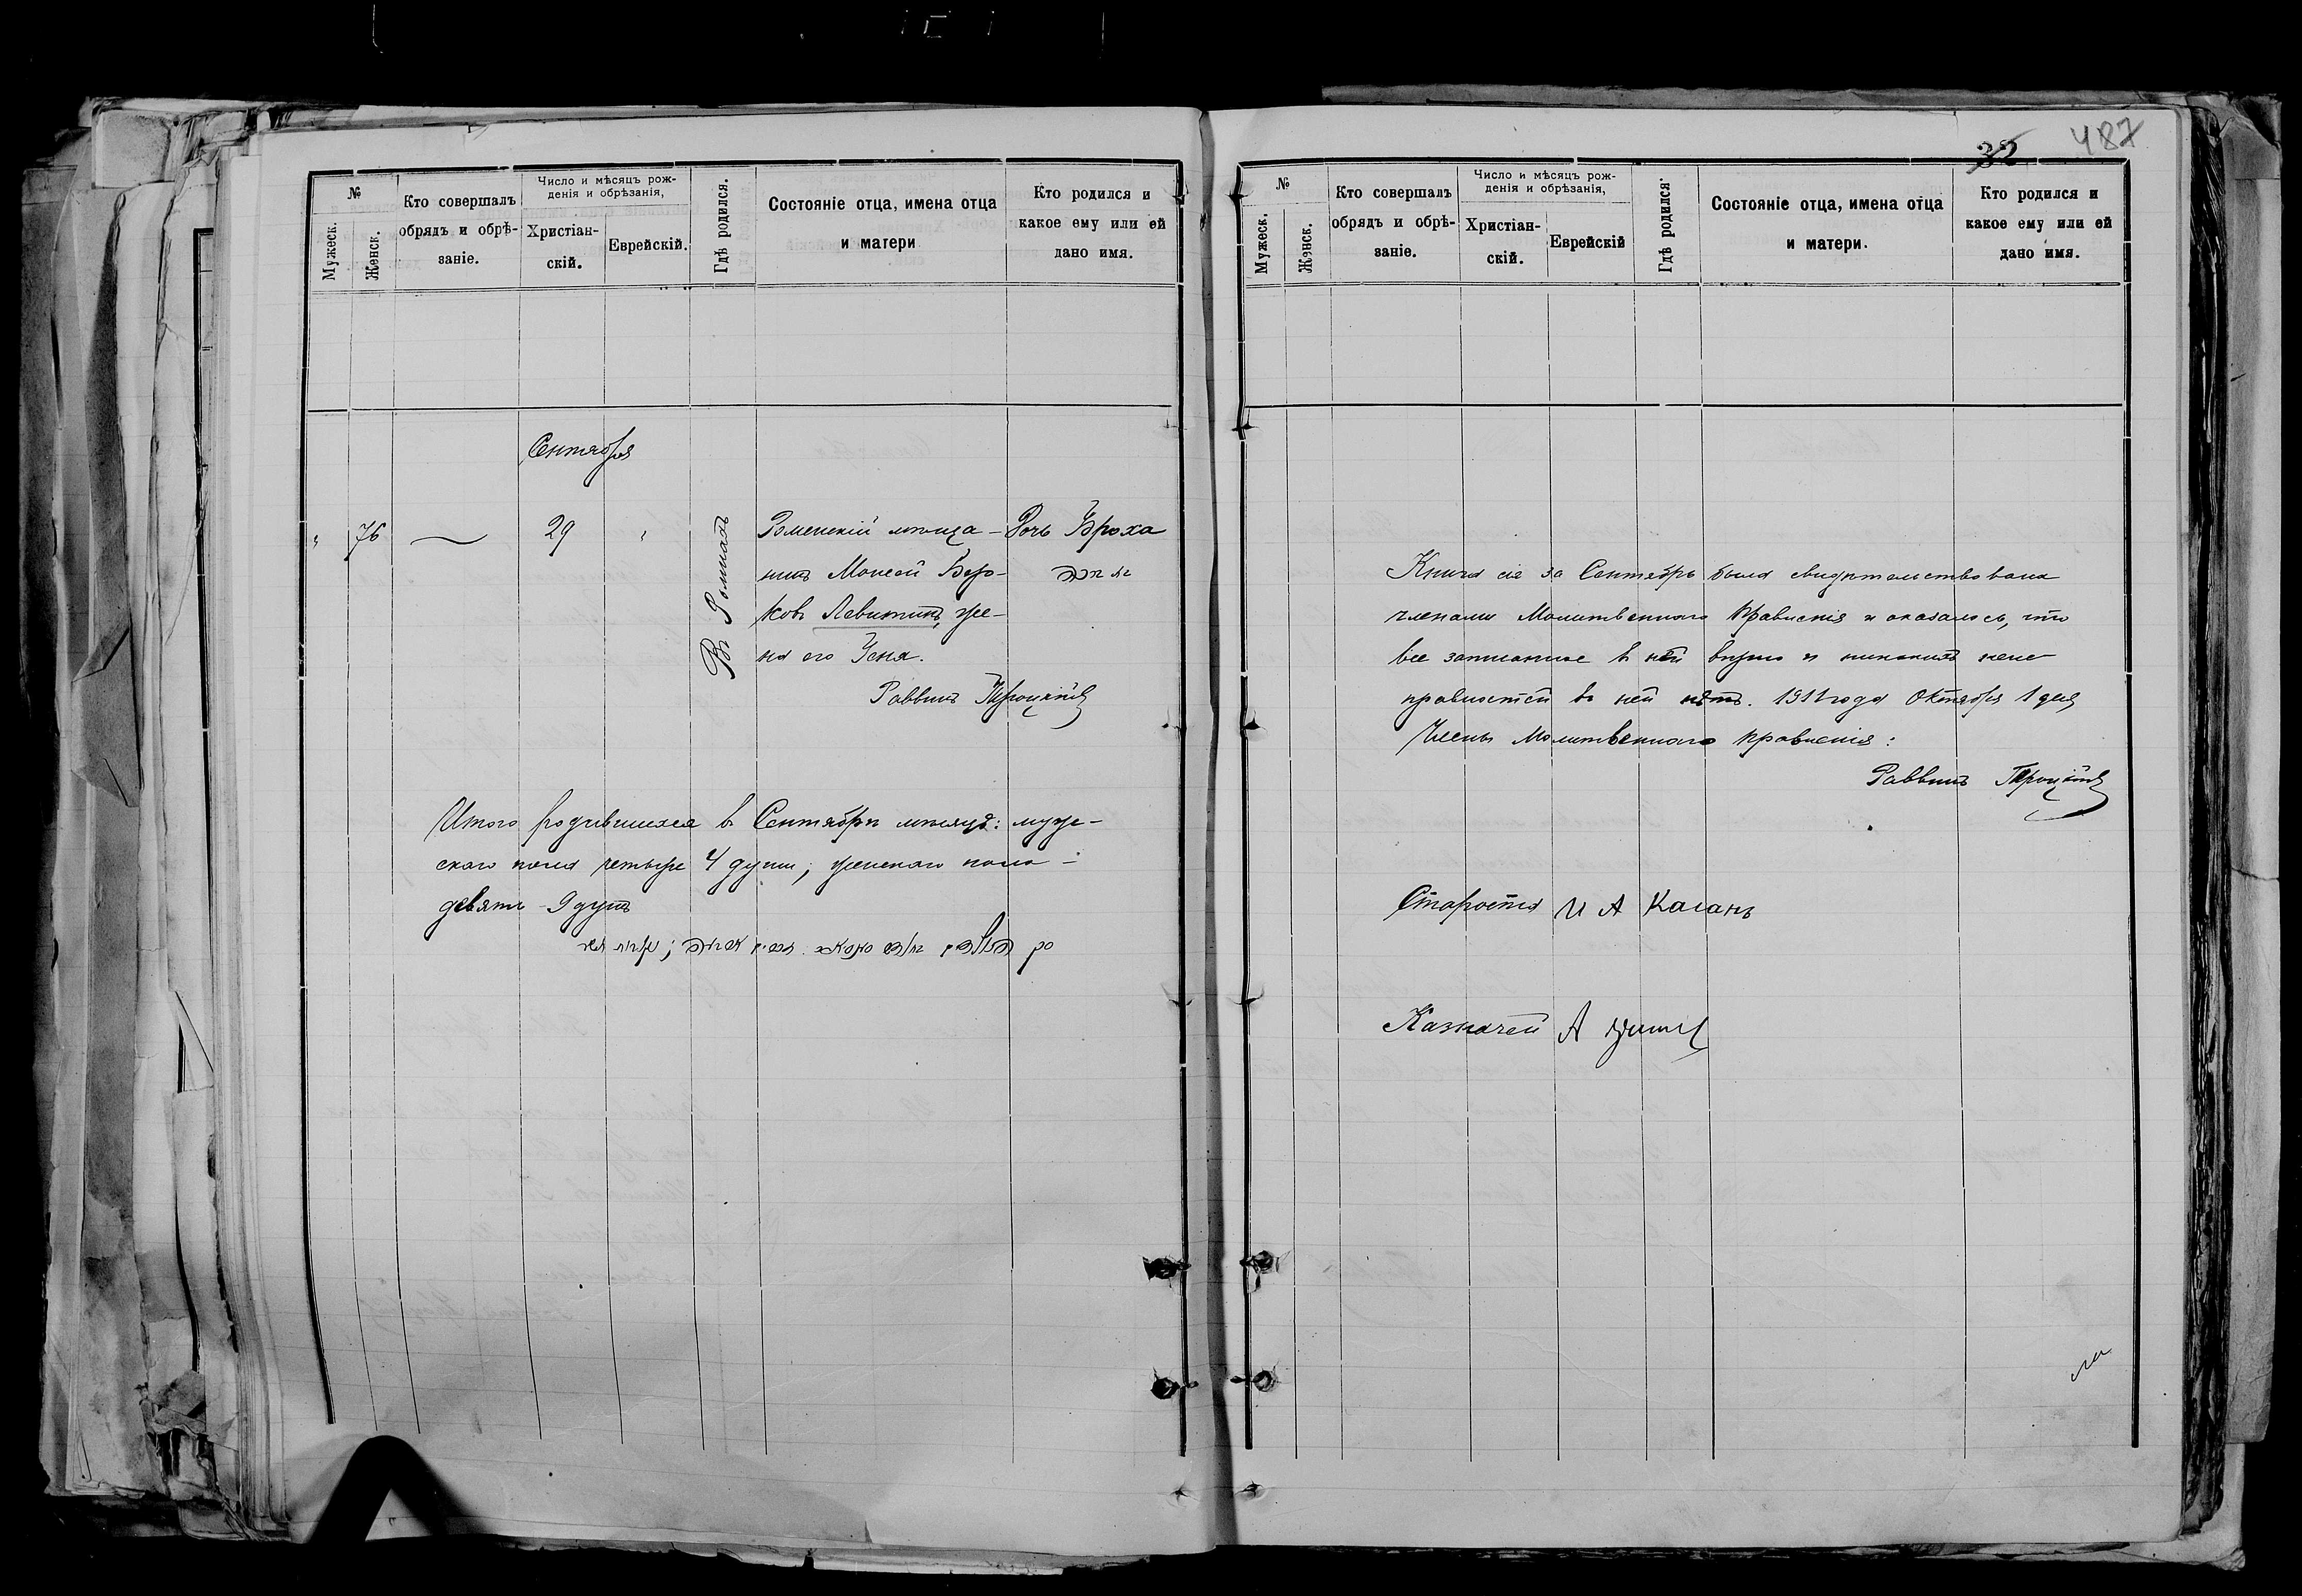 487
32
№
Мужеск.
Женск.
Кто совершалъ
обрядъ и обрѣ-
заніе.
Число и мѣсяцъ рож-
денія и обрѣзанія,
Христіан-
скій.
Еврейскій.
Гдѣ родился.
Состояніе отца, имена отца
и матери
Кто родился и
какое ему или ей
дано имя.
Сентября
"
76
29
"
Въ Ромнахъ
Роменскій мѣща-
нинъ Моисей Беро-
ковъ Левитинъ, же-
на его Геня.
Дочь Броха
Раввинъ Троцкій
Итого родившихся въ Сентябрѣ мѣсяцѣ: муже-
скаго пола четыре 4 души; женскаго пола -
девять - 9 душъ
№
Мужеск.
Женск.
Кто совершалъ
обрядъ и обрѣ-
заніе.
Число и мѣсяцъ рож-
денія и обрѣзанія,
Христіан-
скій.
Еврейскій
Гдѣ родился.
Состояніе отца, имена отца
и матери.
Кто родился и
какое ему или ей
дано имя.
Книга сія за Сентябрь была свидѣтельствована
членами Молитвеннаго Правленія и оказалось, что
все записанное въ ней вѣрно и никакихъ неис-
правностей въ ней нѣтъ. 1911 года Октября 1 дня
Члены Молитвеннаго Правленія:
Раввинъ Троцкій
Староста И А Каганъ
Казначей А